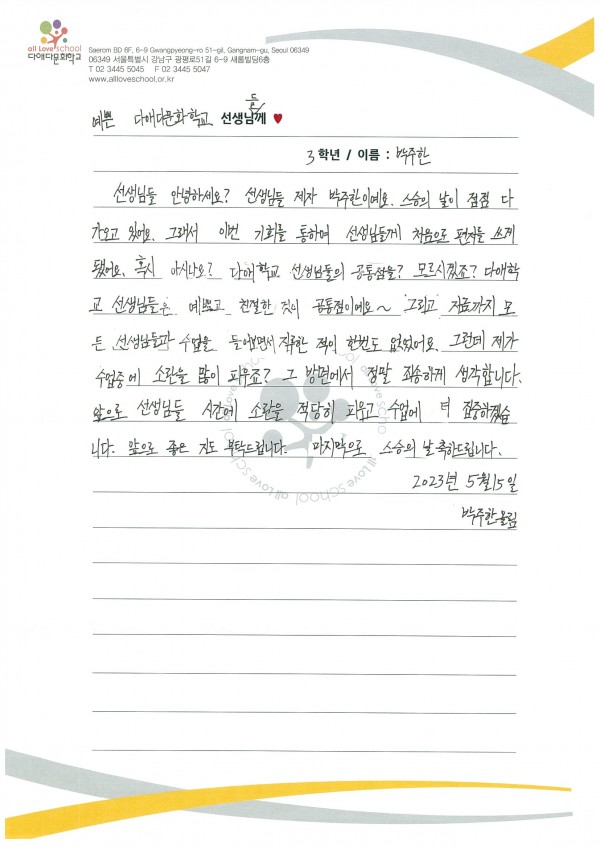 all Love school
다애다문화학교
Saerom BD 6F, 6-9 Gwangpyeong-ro 51-gil, Gangnam-gu, Seoul 06349
06349 서울특별시 강남구 광평로51길 6-9 새롬빌딩6층
T 02 3445 5045 F 02 3445 5047
www.allloveschool.or.kr
들
예쁜 다애다문화학교 선생님께 ♥
3학년 / 이름 : 박주한
선생님들 안녕하세요? 선생님들 제자 박주한이예요. 스승의 날이 점점 다
가오고 있어요. 그래서 이번 기회를 통하여 선생님들께 처음으로 편지를 쓰게
됐어요. 혹시 아시나요? 다애학교 선생님들의 공통점을? 모르시겠죠? 다애학
교 선생님들은 예쁘고 친절한 것이 공통점이예요~ 그리고 지금까지 모
든 선생님들과 수업을 들어보면서 지루한 적이 한번도 없었어요. 그런데 제가
수업중에 소란을 많이 피우죠? 그 방면에서 정말 죄송하게 생각합니다.
앞으로 선생님들 시간에 소란을 적당히 피우고 수업에 더 집중하겠습
니다. 앞으로 좋은 지도 부탁드립니다. 마지막으로 스승의 날 축하드립니다.
2023년 5월 15일
박주한 올림
all Love school all Love school all Love school